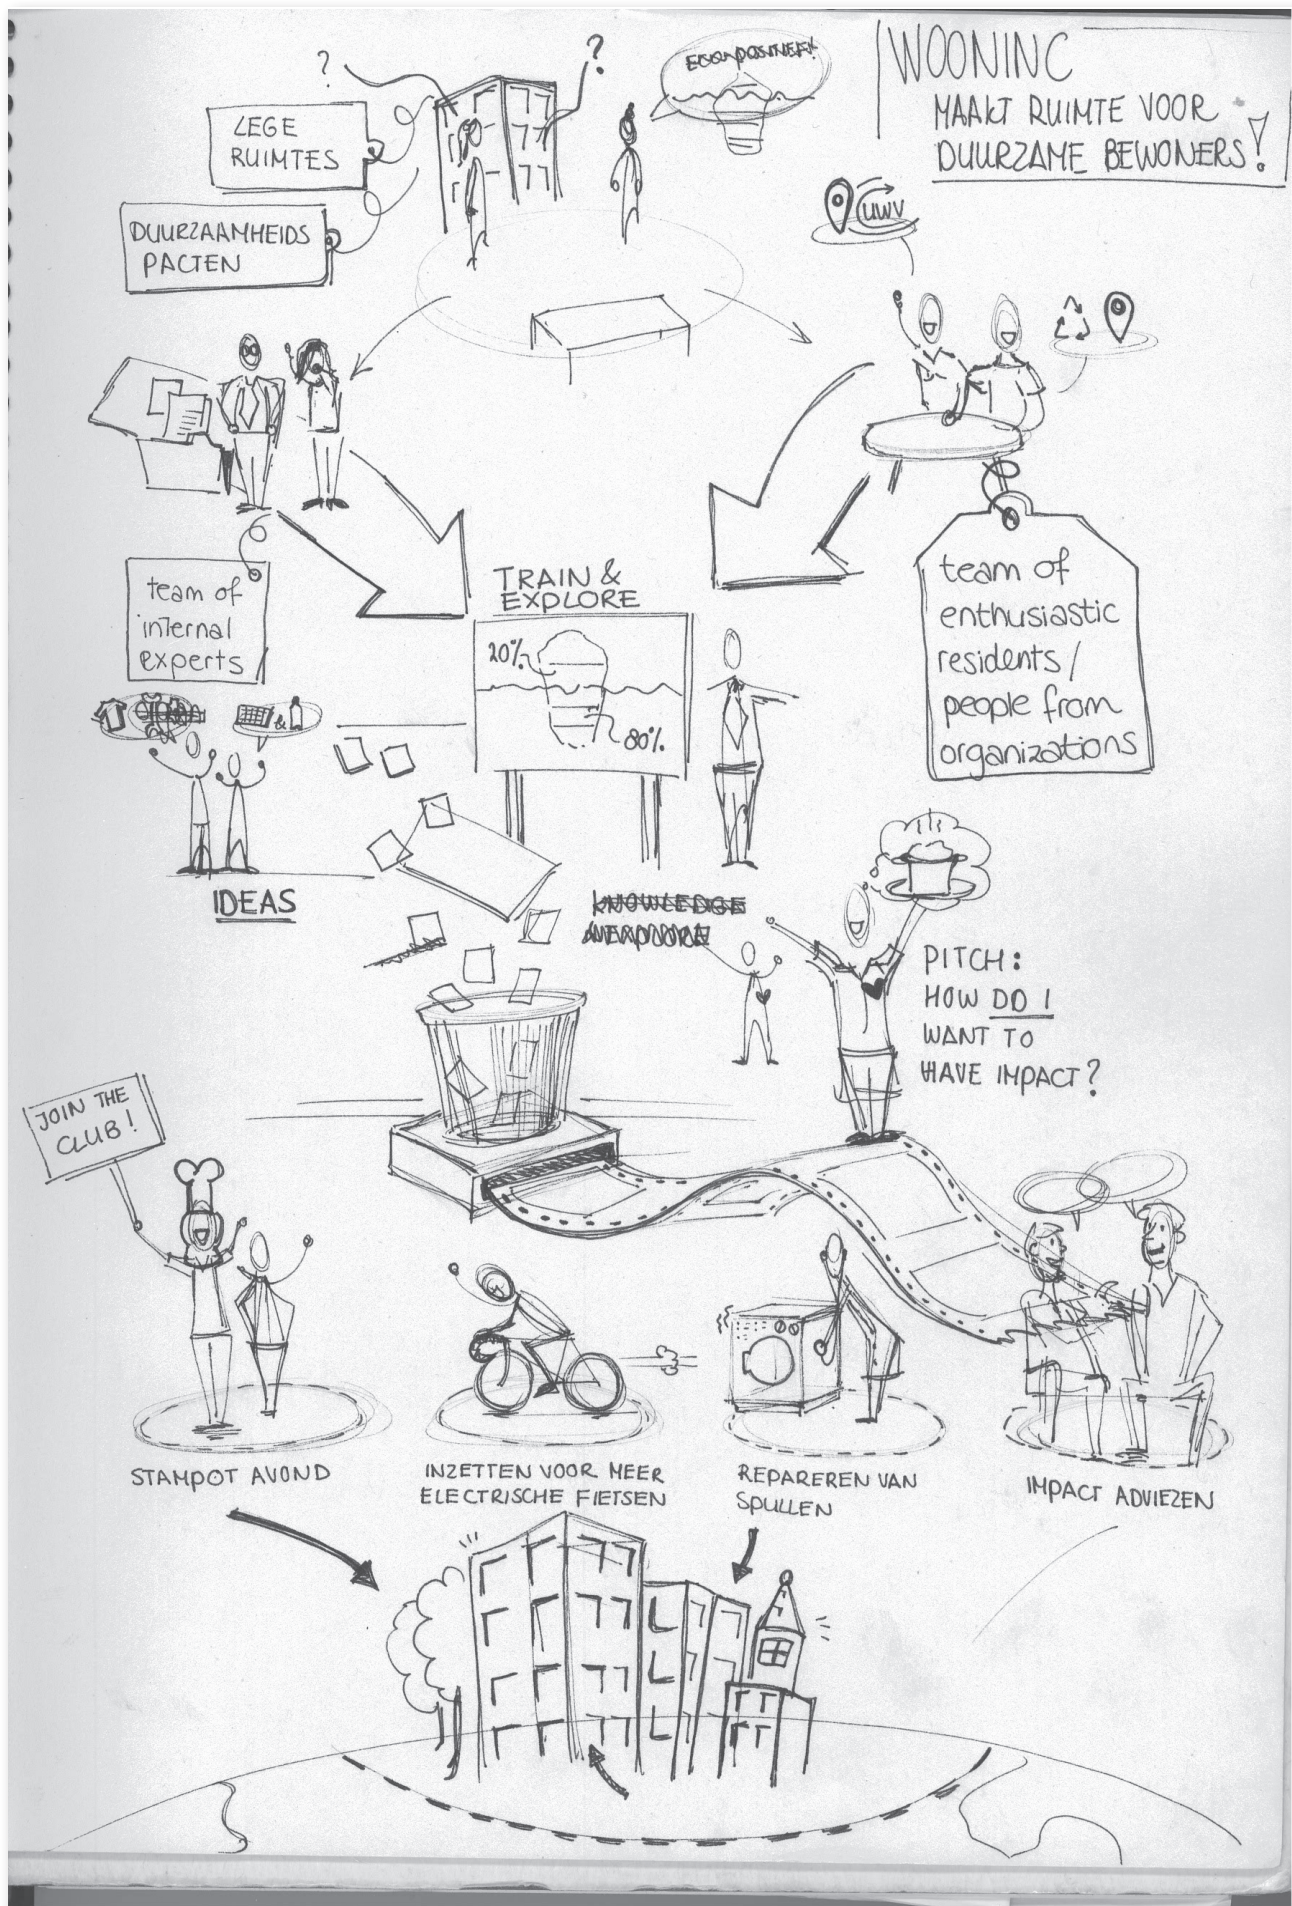 ?
?
ECONPOSITIEF!
WOONINC
MAAKT RUIMTE VOOR
DUURZAME BEWONERS!
LEGE
RUIMTES
DUURZAAMHEIDS
PACTEN
UWV
team of
internal
experts
TRAIN &
EXPLORE
20%
80%
team of
enthusiastic
residents/
people from
organizations
&
IDEAS
KNOWLEDGE
PITCH:
HOW DO I
WANT TO
HAVE IMPACT?
JOIN THE
CLUB!
STAMPOT AVOND
INZETTEN VOOR MEER
ELECTRISCHE FIETSEN
REPAREREN VAN
SPULLEN
IMPACT ADVIEZEN